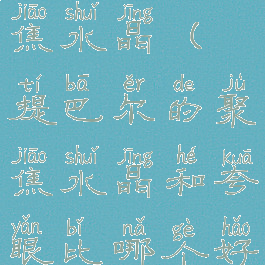 jiāo shuǐ jīng
焦水晶（
tí bā ěr de jù
提巴尔的聚
jiāo shuǐ jīng hé kuā
焦水晶和夸
yǎn bǐ nǎ gè hǎo
眼比哪个好